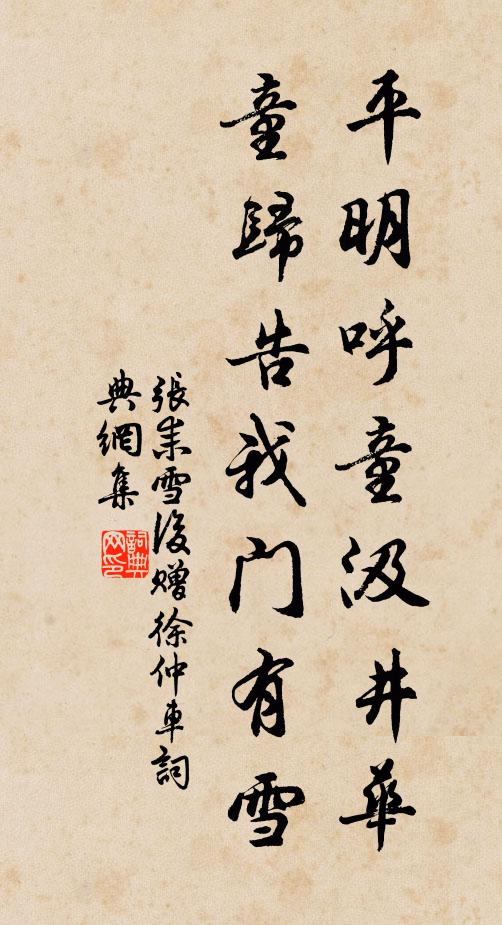 平明呼童汲井華
童歸告我門有雪
張耒雪後贈徐仲車詞
典網集
詞典
网印